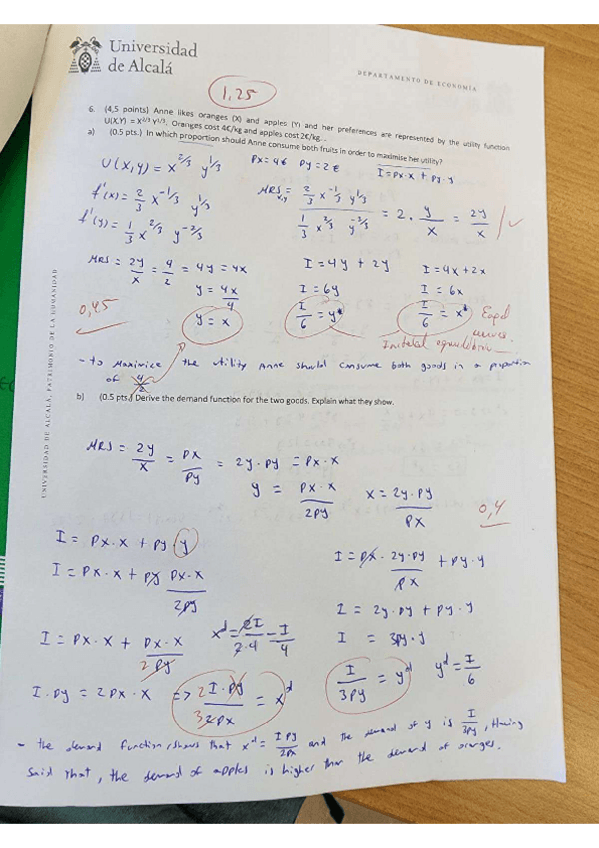 Universidad
de Alcalá
DEPARTAMENTO DE ECONOMÍA
1,25
6. (4,5 points) Anne likes oranges (X) and apples (Y) and her preferences are represented by the utility function
U(X,Y) = X^2/3 Y^1/3. Oranges cost 4€/kg and apples cost 2€/kg.
a) (0.5 pts.) In which proportion should Anne consume both fruits in order to maximise her utility?
U(X,Y) = X^2/3 Y^1/3 Px=4€ Py=2€ I=Px·X + Py·Y
f'(x) = 2/3 x^-1/3 y^1/3
f'(y) = 1/3 x^2/3 y^-2/3
MRS x,y = 2/3 x^-1/3 y^1/3 / 1/3 x^2/3 y^-2/3 = 2 · y/x = 2y/x
MRS = 2y/x = 4/2 = 4y = 4x
y = 4x/4
y = x
I = 4y + 2y
I = 6y
I/6 = y*
I = 4x + 2x
I = 6x
I/6 = x*
0,45
Engel
curves
Initial equilibrium
- to maximize the utility Anne should consume both goods in a proportion
of 4/2
UNIVERSIDAD DE ALCALÁ, PATRIMONIO DE LA HUMANIDAD
b) (0.5 pts.) Derive the demand function for the two goods. Explain what they show.
MRS = 2y/x = Px/Py = 2y·Py = Px·x
y = Px·x/2Py x = 2y·Py/Px
0,4
I = Px·x + Py·y
I = Px·x + Py Px·x/2Py
I = Px·x + Px·x/2Py
I·Py = 2Px·x => 2 I·Py/3 2Px = x^d
x^d = 2I/2·4 = I/4
I = Px · 2y·Py/Px + Py·y
I = 2y·Py + Py·y
I = 3Py·y
I/3Py = y^d y^d = I/6
- the demand function shows that x^d = I Py/2Px and the demand of y is I/3Py, Having
said that, the demand of apples is higher than the demand of oranges.